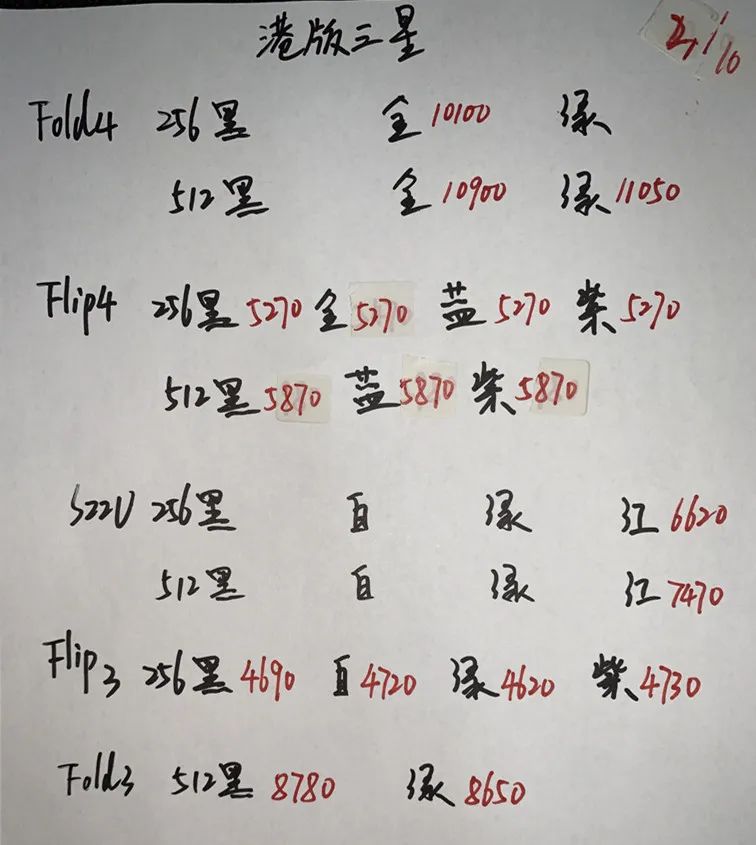 港版三星
21/10
Fold4 256黑 金10100 绿
512黑 金10900 绿11050
Flip4 256黑5270 金5270 蓝5270 紫5270
512黑5870 蓝5870 紫5870
S22U 256黑 白 绿 红6620
512黑 白 绿 红7470
Flip3 256黑4690 白4720 绿4620 紫4730
Fold3 512黑8780 绿8650